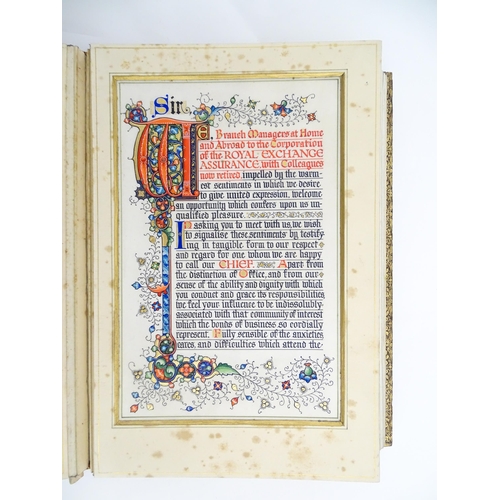 Sir
WE, Branch Managers at Home
and Abroad to the Corporation
of the ROYAL EXCHANGE
ASSURANCE, with Colleagues
now retired, impelled by the warm-
est sentiments in which we desire
to give united expression, welcome
an opportunity which confers upon us un-
qualified pleasure.
In asking you to meet with us, we wish
to signalise these sentiments by testify-
ing in tangible form to our respect
and regard for one whom we are happy
to call our CHIEF. Apart from
the distinction of Office, and from our
sense of the ability and dignity with which
you conduct and grace its responsibilities,
we feel your influence to be indissolubly
associated with that community of interest
which the bonds of business so cordially
represent. Fully sensible of the anxieties,
cares, and difficulties which attend the